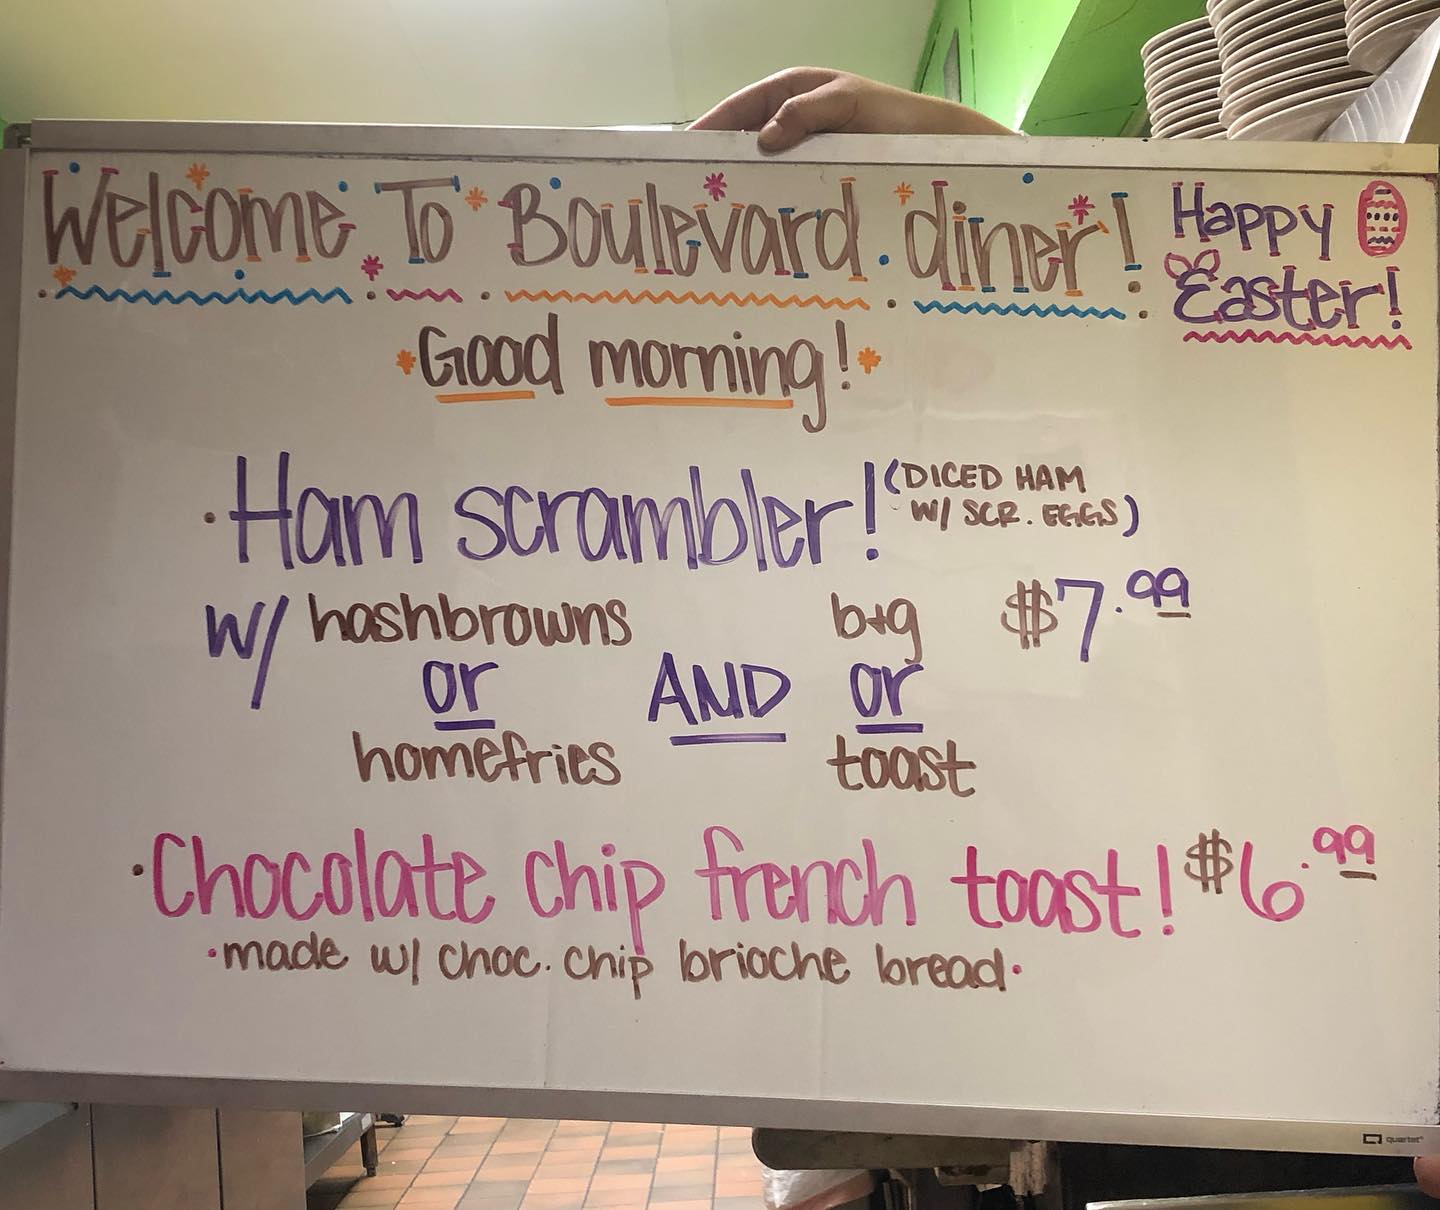 Welcome To Boulevard diner!
Happy
Easter!
Good morning!
Ham scrambler! (DICED HAM
W/ SCR. EGGS)
w/ hashbrowns b+g $7.99
or AND or
homefries toast
Chocolate chip french toast! $6.99
made w/ choc. chip brioche bread.
quartet